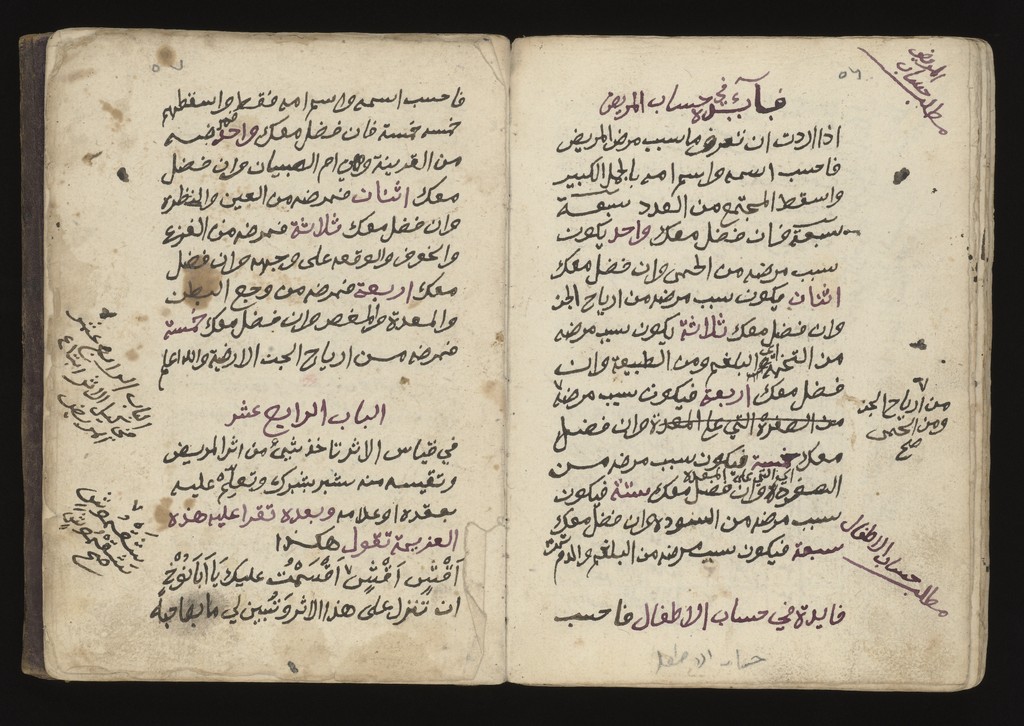 ٥٦
مطلب حساب
المريض
فايدة في حساب المريض
اذا اردت ان تعرف ما سبب مرض المريض
فاحسب اسمه واسم امه بالجمل الكبير
واسقط المجتمع من العدد سبعة
سبعة فان فضل معك واحد يكون
سبب مرضه من الحمى وان فضل معك
اثنان يكون سبب مرضه من ارياح الجن
وان فضل معك ثلاثة يكون سبب مرضه
من التخمة البلغم ومن الطبيعة وان
فضل معك اربعة فيكون سبب مرضه
من الصفرة التي على المعدة وان فضل
معك خمسة فيكون سبب مرضه من
الصفرة وان فضل معك ستة فيكون
سبب مرضه من السودة وان فضل معك
سبعة فيكون سبب مرضه من البلغم والدم
فايدة في حساب الاطفال فاحسب
من ارياح الجن
ومن الحمى
صح
مطلب حساب الاطفال
حساب الاطفال
٥٧
فاحسب اسمه واسم امه فقط واسقطهم
خمسه خمسة فان فضل معك واحد فمرضه
من القرينة وهي ام الصبيان وان فضل
معك اثنان فمرضه من العين والنظره
وان فضل معك ثلاثة فمرضه من الفزع
والخوف والوقعه على وجهه وان فضل
معك اربعة فمرضه من وجع البطن
والمعدة والمغص وان فضل معك خمسة
فمرضه من ارياح الجن الارضية والله اعلم
الباب الرابع عشر
في قياس الاثر تاخذ شيئ من اثر المريض
وتقيسه منه شبر بشبرك وتعلم عليه
بعقده او علامه وبعده تقرا عليه هذه
العزيمة تقول هكذا
اَقْشٍ اَقْشٍ اَقْسَمْتُ عليك يَا اَبَانُوخٍ
ان تَنزل على هذا الاثر وَتُبين لي ما بصاحبه
الباب الرابع عشر
المريض